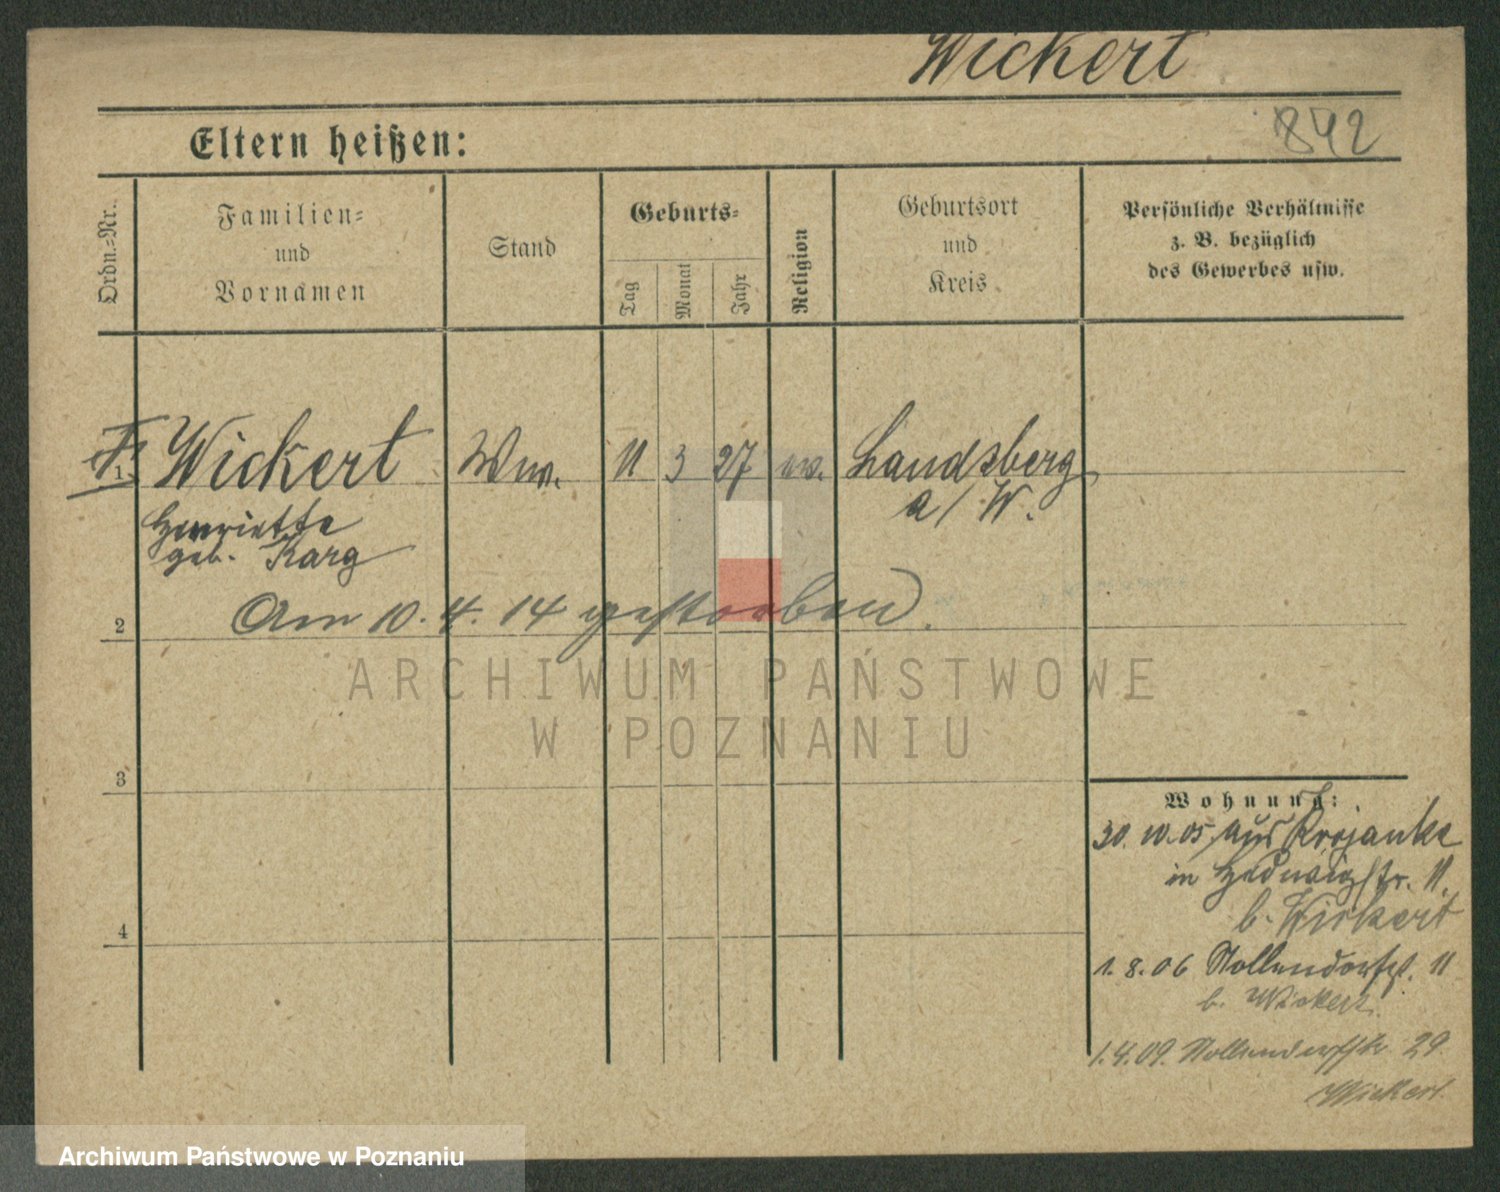 Wickert
842
Eltern heißen:
Ordn.-Nr.
Familien-
und
Vornamen
Stand
Geburts-
Tag
Monat
Jahr
Religion
Geburtsort
und
Kreis
Persönliche Verhältnisse
z. B. bezüglich
des Gewerbes usw.
1. Wickert Ww. 11 3 27 ev. Landsberg
a/W.
Henriette
geb. Karg
Am 10. 4. 14 gestorben.
2
3
4
Wohnung:
30. 10. 05. aus Krojanke
in Hedwigstr. 11.
b. Wickert
1. 8. 06 Nollendorfstr. 11
b. Wickert.
1. 4. 09. Nollendorfstr. 29.
Wickert.
ARCHIWUM PAŃSTWOWE
W POZNANIU
Archiwum Państwowe w Poznaniu